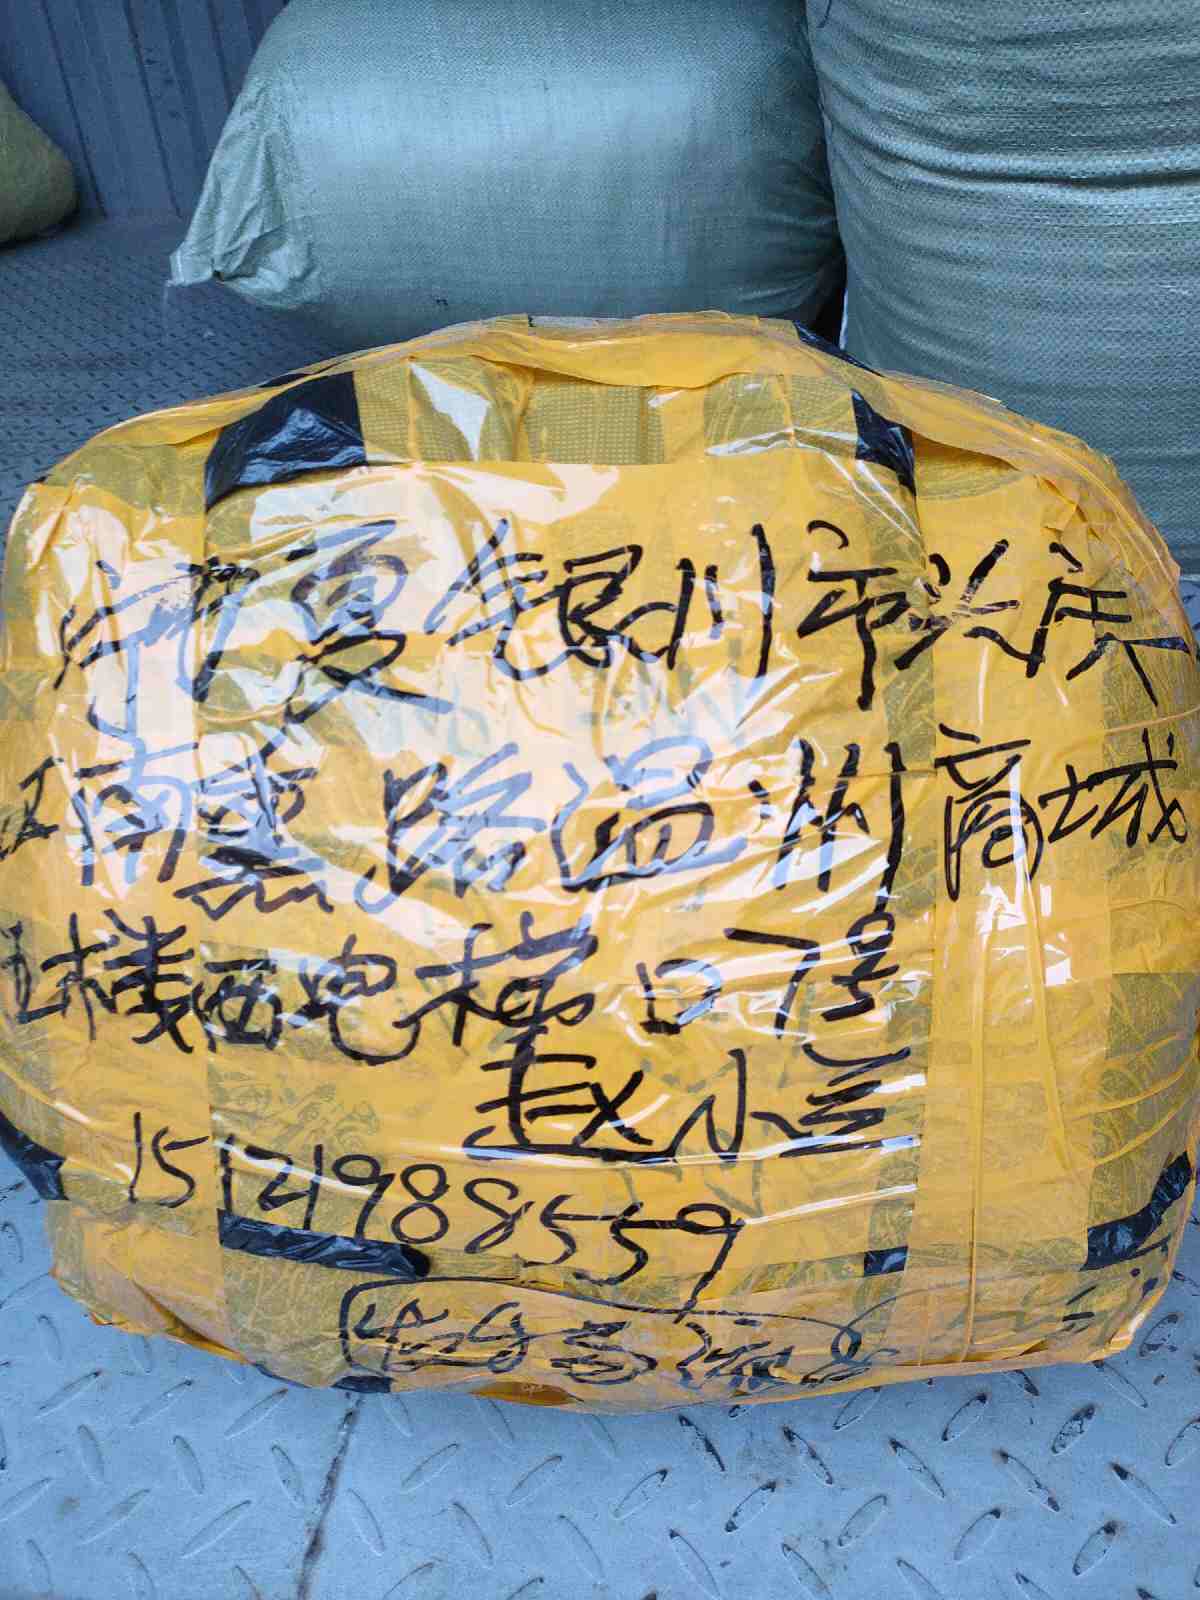 宁夏银川市兴庆
区南熏路温州商城
五楼西电梯口7号
赵小兰
15121988559